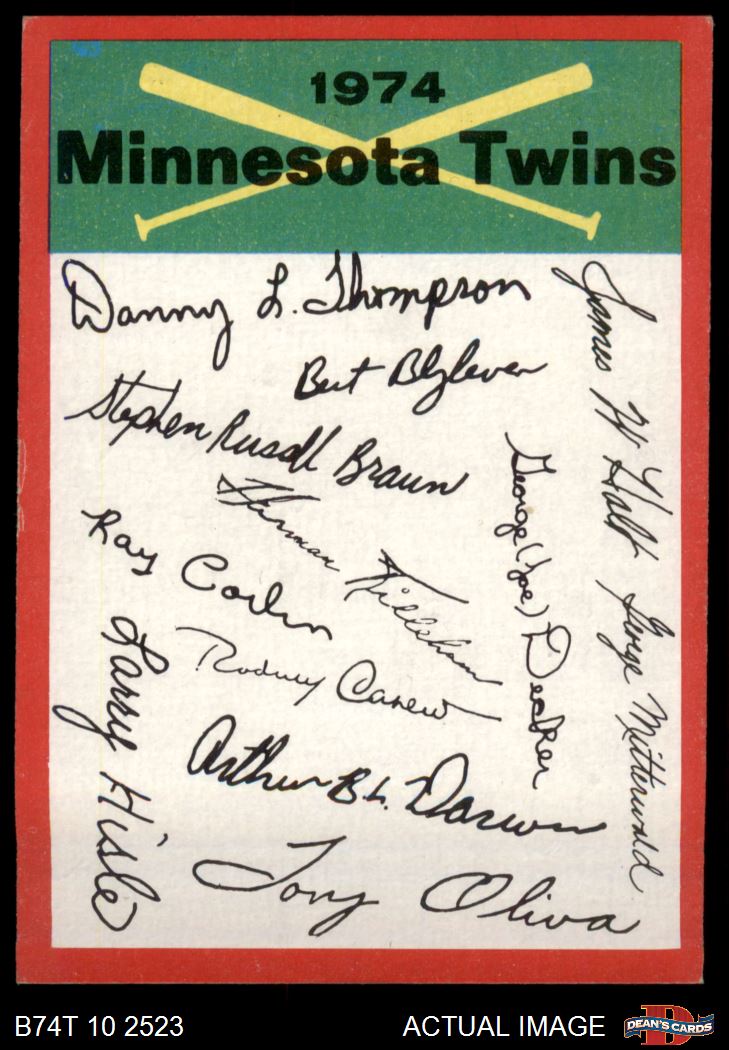 1974
Minnesota Twins
Danny L. Thompson
Bert Blyleven
Stephen Russell Braun
Harmon Killebrew
Ray Corbin
Rodney Carew
Larry Hisle
Arthur B L. Darwin
Tony Oliva
George (Joe) Decker
James W Holt
George Mitterwald
B74T 10 2523
ACTUAL IMAGE
DEAN'S CARDS